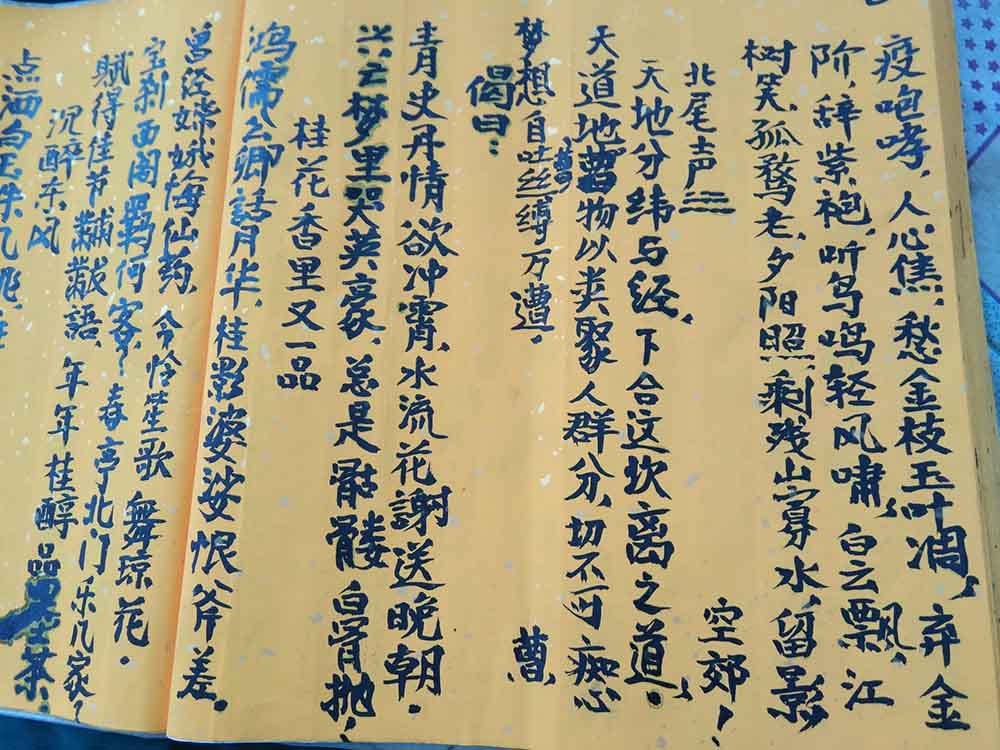 疫咆哮，人心焦，愁金枝玉叶凋，弃金
阶，辞紫袍，听鸟鸣轻风啸，白云飘，江
树笑，孤鹜老，夕阳照，剩残山寡水，留影
北尾声三 空郊！
天地分纬与经，下合这坎离之道。
天道地曹万物以类聚人群分，切不可痴心
梦想自吐丝缚万遭。曹
偈曰：
青史丹情欲冲霄，水流花謝送晚朝。
兴亡梦里哭英豪，总是骷髅白骨抛！
桂花香里又一品
鸿儒公卿話月华，桂影婆娑恨斧差。
曾经嫦娥悔仙药，今怜笙歌舞琼花。
宝刹西阁羁何客？春亭北门乐几家？
赋得佳节黼黻語，年年桂醇品墨茶。
沉醉东风
点洒白玉朱几